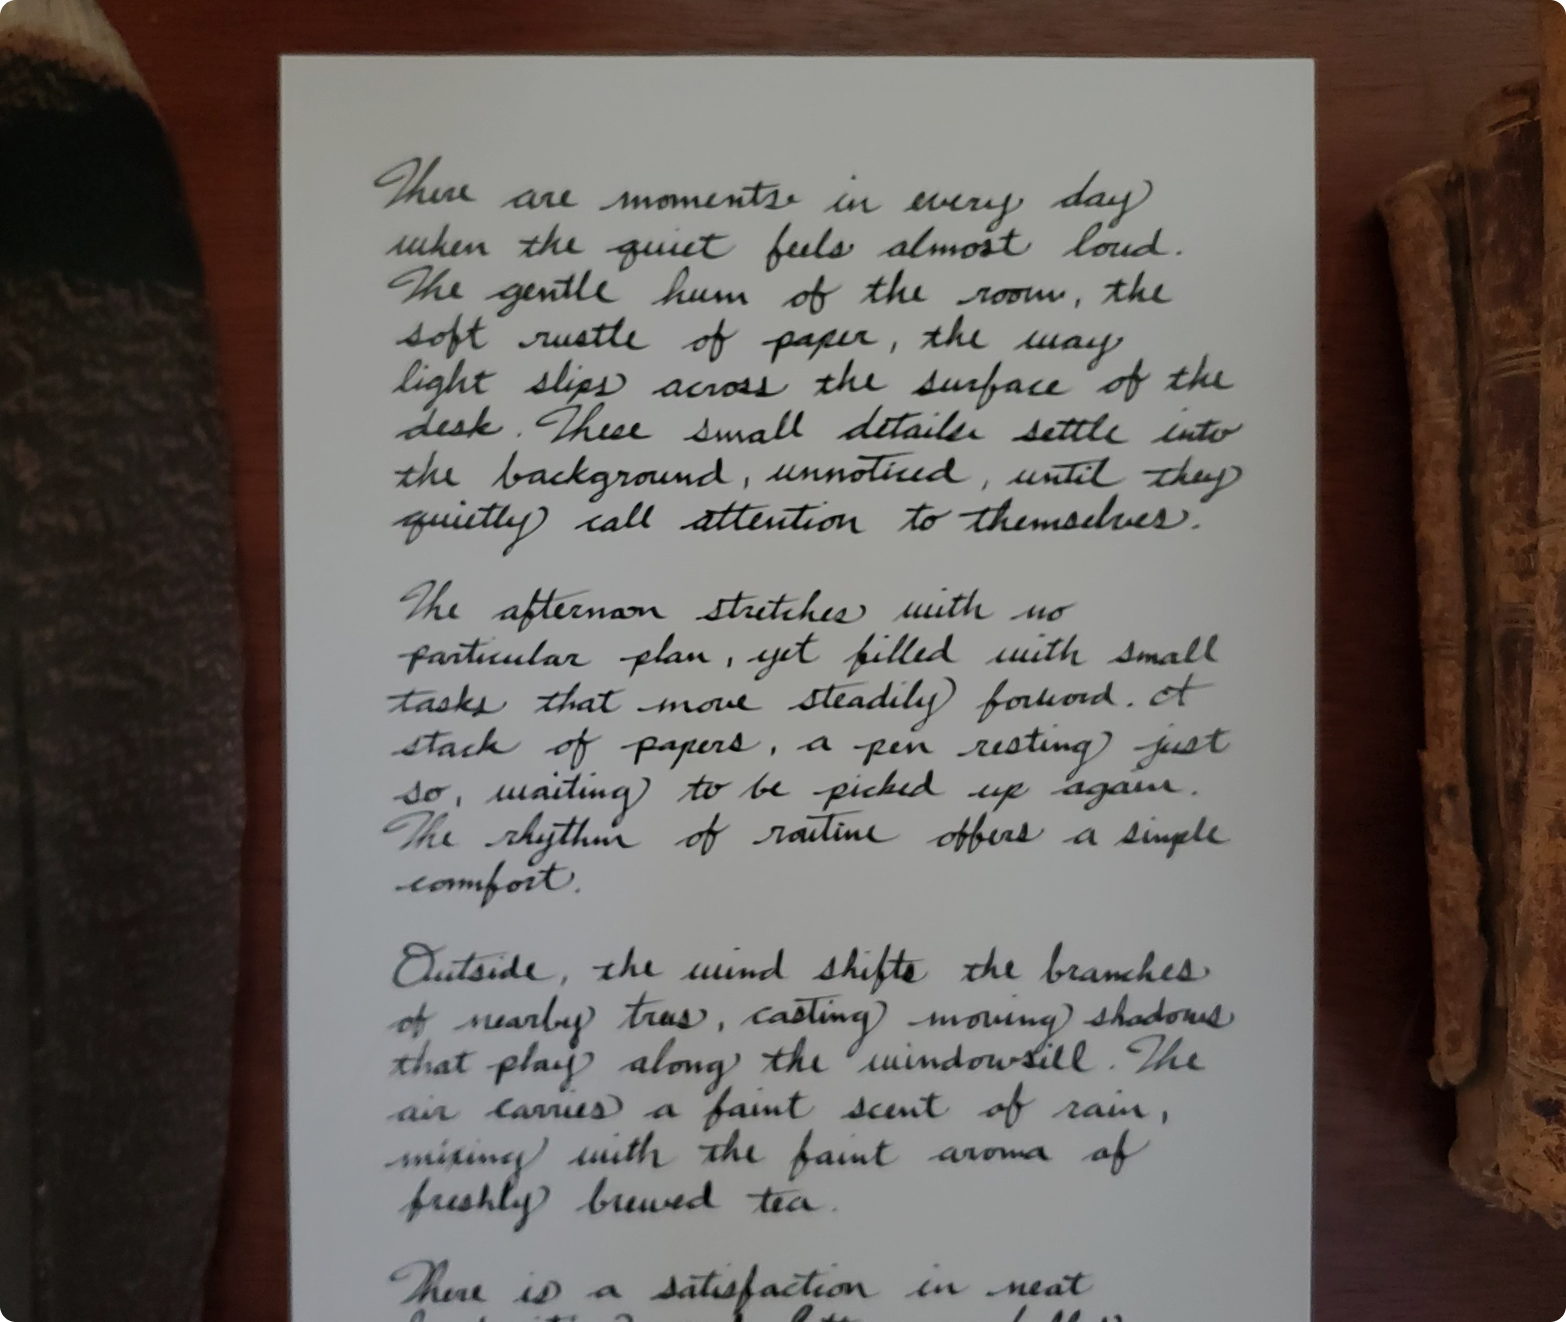 There are moments in every day
when the quiet feels almost loud.
The gentle hum of the room, the
soft rustle of paper, the way
light slips across the surface of the
desk. These small details settle into
the background, unnoticed, until they
quietly call attention to themselves.
The afternoon stretches with no
particular plan, yet filled with small
tasks that move steadily forward. A
stack of papers, a pen resting just
so, waiting to be picked up again.
The rhythm of routine offers a simple
comfort.
Outside, the wind shifts the branches
of nearby trees, casting moving shadows
that play along the windowsill. The
air carries a faint scent of rain,
mixing with the faint aroma of
freshly brewed tea.
There is a satisfaction in neat